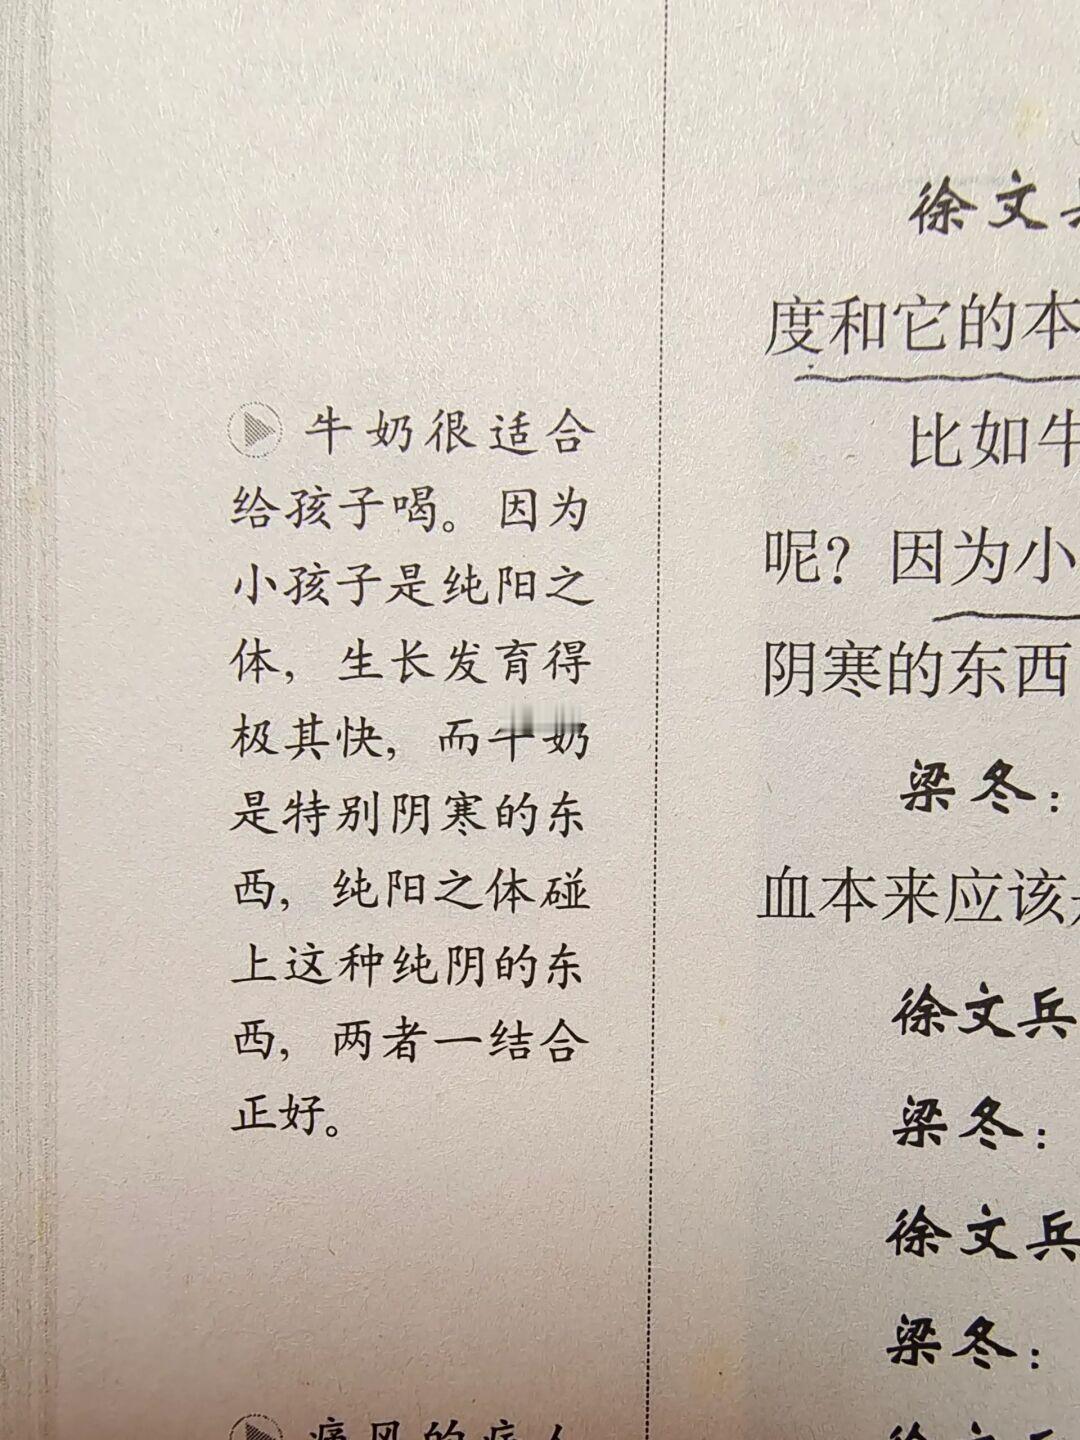 牛奶很适合
给孩子喝。因为
小孩子是纯阳之
体，生长发育得
极其快，而牛奶
是特别阴寒的东
西，纯阳之体碰
上这种纯阴的东
西，两者一结合
正好。
痛风的病人
徐文兵
度和它的本
比如牛
呢？因为小
阴寒的东西
梁冬：
血本来应该
徐文兵
梁冬：
徐文兵
梁冬：
徐文兵